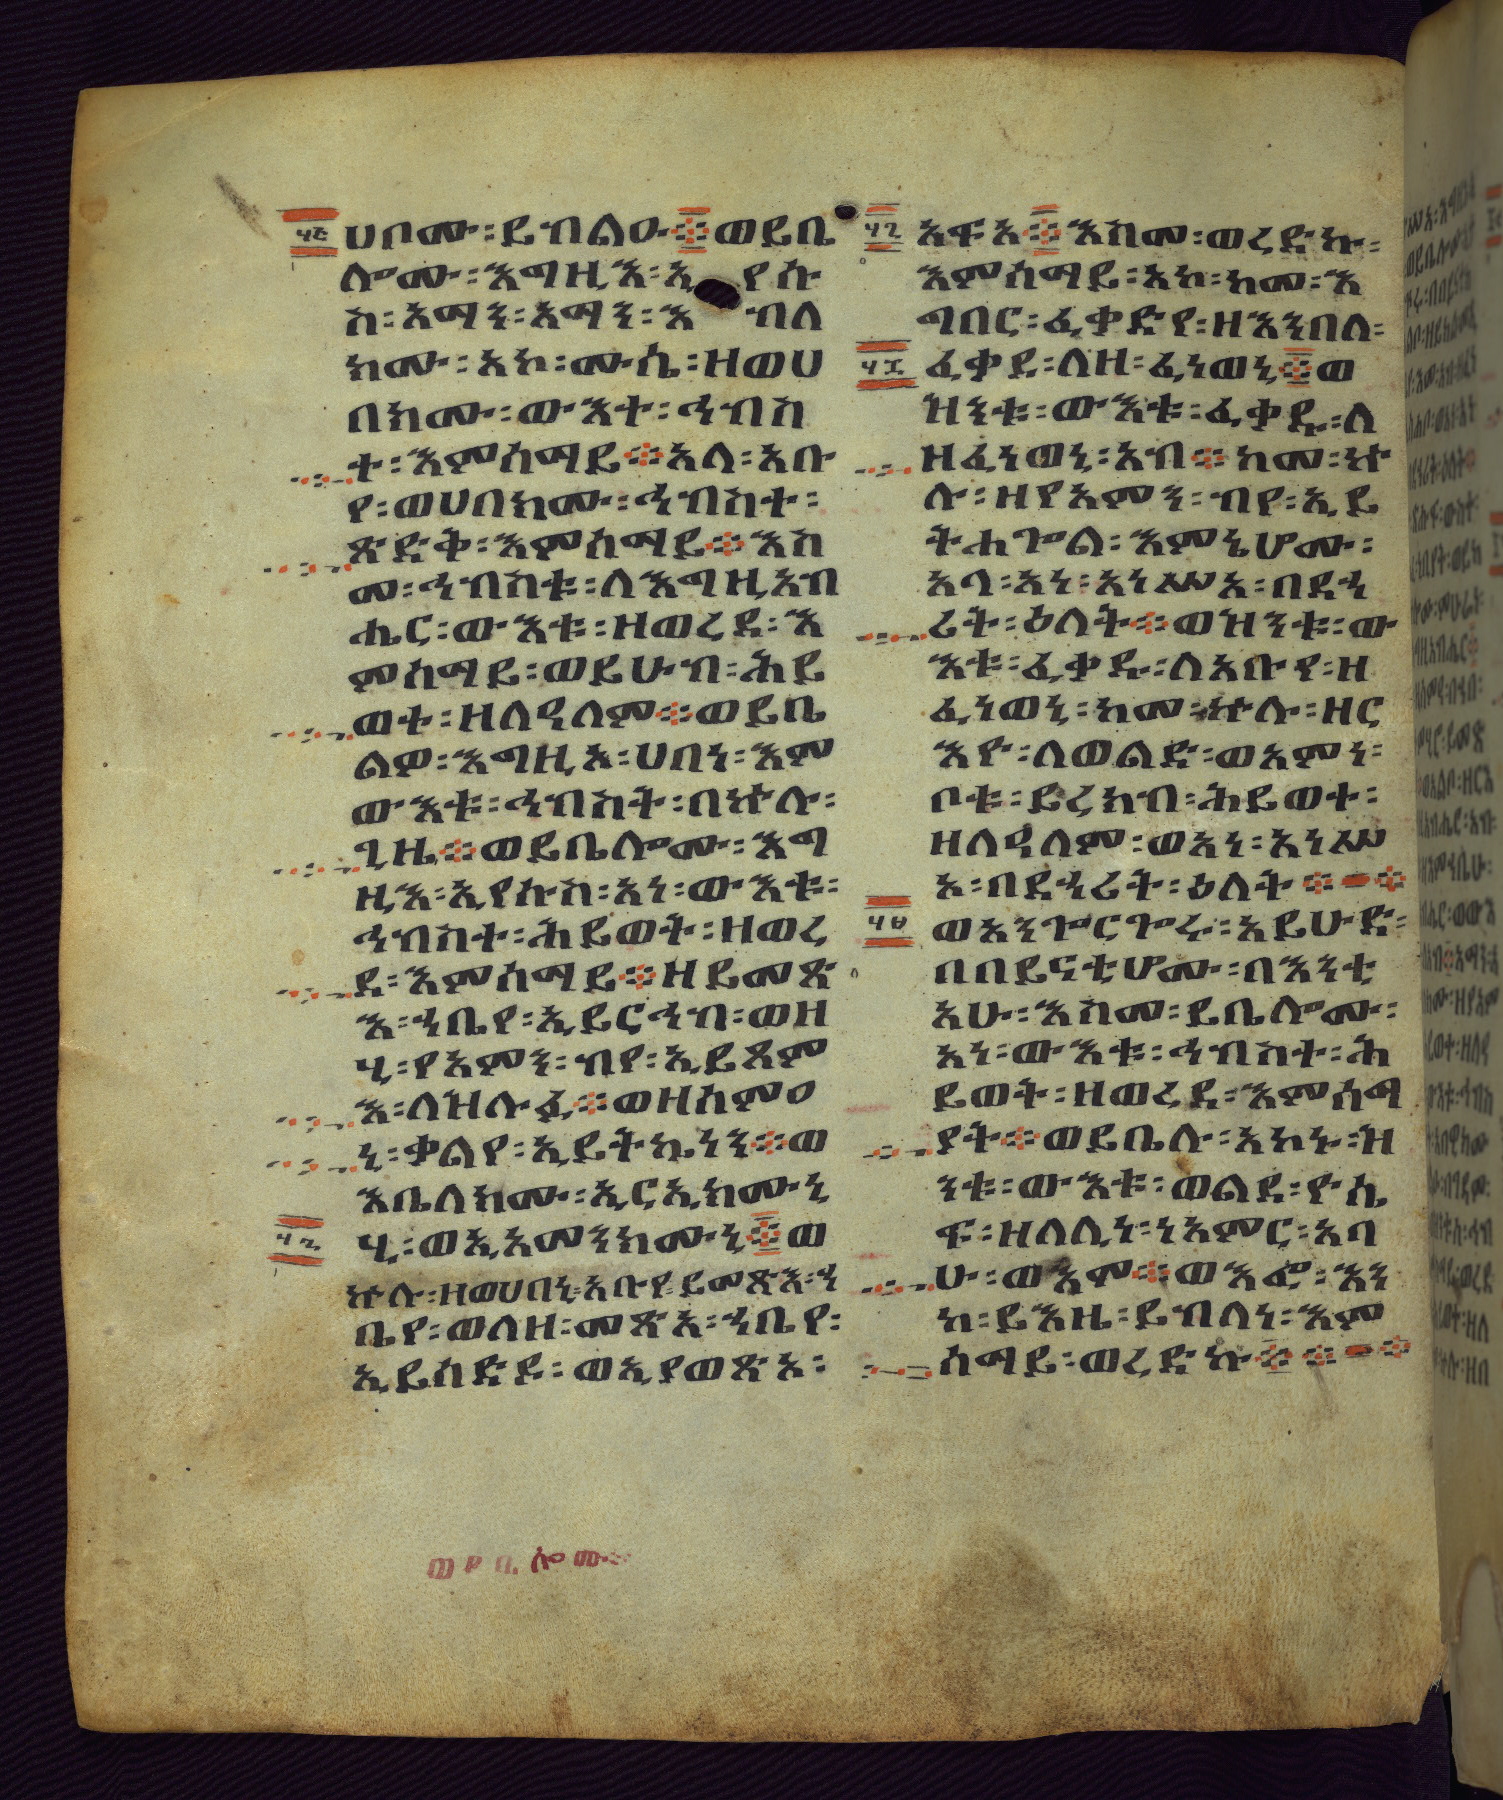 ፶፭ ሀቦሙ ፡ ይብልዑ ፨ ወይቤ
ሎሙ ፡ እግዚእ ፡ ኢየሱ
ስ ፡ አማን ፡ አማን ፡ እብለ
ክሙ ፡ አኮ ፡ ሙሴ ፡ ዘወሀ
በክሙ ፡ ውእተ ፡ ኅብስ
ተ ፡ እምሰማይ ፨ አላ ፡ አቡ
የ ፡ ወሀበክሙ ፡ ኅብስተ ፡
ጽድቅ ፡ እምሰማይ ፨ እስ
መ ፡ ኅብስቱ ፡ ለእግዚአብ
ሔር ፡ ውእቱ ፡ ዘወረደ ፡ እ
ምሰማይ ፡ ወይሁብ ፡ ሕይ
ወተ ፡ ዘለዓለም ፨ ወይቤ
ልዎ ፡ እግዚኦ ፡ ሀበነ ፡ እም
ውእቱ ፡ ኅብስት ፡ በኵሉ ፡
ጊዜ ፨ ወይቤሎሙ ፡ እግ
ዚእ ፡ ኢየሱስ ፡ አነ ፡ ውእቱ ፡
ኅብስተ ፡ ሕይወት ፡ ዘወረ
ደ ፡ እምሰማይ ፨ ዘይመጽ
እ ፡ ኀቤየ ፡ ኢይርኅብ ፡ ወዘ
ሂ ፡ የአምን ፡ ብየ ፡ ኢይጸም
እ ፡ ለዝሉፉ ፨ ወዘሰምዐ
ኒ ፡ ቃልየ ፡ ኢይትኴነን ፨ ወ
እቤለክሙ ፡ ኢርኢክሙኒ
ሂ ፡ ወኢአመንክሙኒ ፨ ወ
ኵሉ ፡ ዘወሀበኒ ፡ አቡየ ፡ ይመጽእ ፡ ኀ
ቤየ ፡ ወለዘ ፡ መጽአ ፡ ኀቤየ ፡
ኢይሰድዶ ፡ ወኢያወጽኦ ፡
አፍአ ፨ እስመ ፡ ወረድኩ ፡
እምሰማይ ፡ አኮ ፡ ከመ ፡ እ
ግበር ፡ ፈቃድየ ፡ ዘእንበለ ፡
ፈቃደ ፡ ለዘ ፡ ፈነወኒ ፨ ወ
ዝንቱ ፡ ውእቱ ፡ ፈቃዱ ፡ ለ
ዘፈነወኒ ፡ አብ ፨ ከመ ፡ ኵ
ሉ ፡ ዘየአምን ፡ ብየ ፡ ኢይ
ትሐጐል ፡ እምኔሆሙ ፡
አላ ፡ አነ ፡ አነሥኦ ፡ በደኃ
ሪት ፡ ዕለት ፨ ወዝንቱ ፡ ው
እቱ ፡ ፈቃዱ ፡ ለአቡየ ፡ ዘ
ፈነወኒ ፡ ከመ ፡ ኵሉ ፡ ዘር
እዮ ፡ ለወልድ ፡ ወአምነ ፡
ቦቱ ፡ ይረክብ ፡ ሕይወተ ፡
ዘለዓለም ፡ ወአነ ፡ አነሥ
ኦ ፡ በደኃሪት ፡ ዕለት ፨ ፨
ወአንጐርጐሩ ፡ አይሁድ ፡
በበይናቲሆሙ ፡ በእንቲ
አሁ ፡ እስመ ፡ ይቤሎሙ ፡
አነ ፡ ውእቱ ፡ ኅብስተ ፡ ሕ
ይወት ፡ ዘወረደ ፡ እምሰማ
ያት ፨ ወይቤሉ ፡ አኮኑ ፡ ዝ
ንቱ ፡ ውእቱ ፡ ወልደ ፡ ዮሴ
ፍ ፡ ዘለሊነ ፡ ነአምር ፡ አባ
ሁ ፡ ወእሞ ፨ ወእፎ ፡ እን
ከ ፡ ይእዜ ፡ ይብለነ ፡ እም
ሰማይ ፡ ወረድኩ ፨ ፨ ፨
ወይቤሎሙ